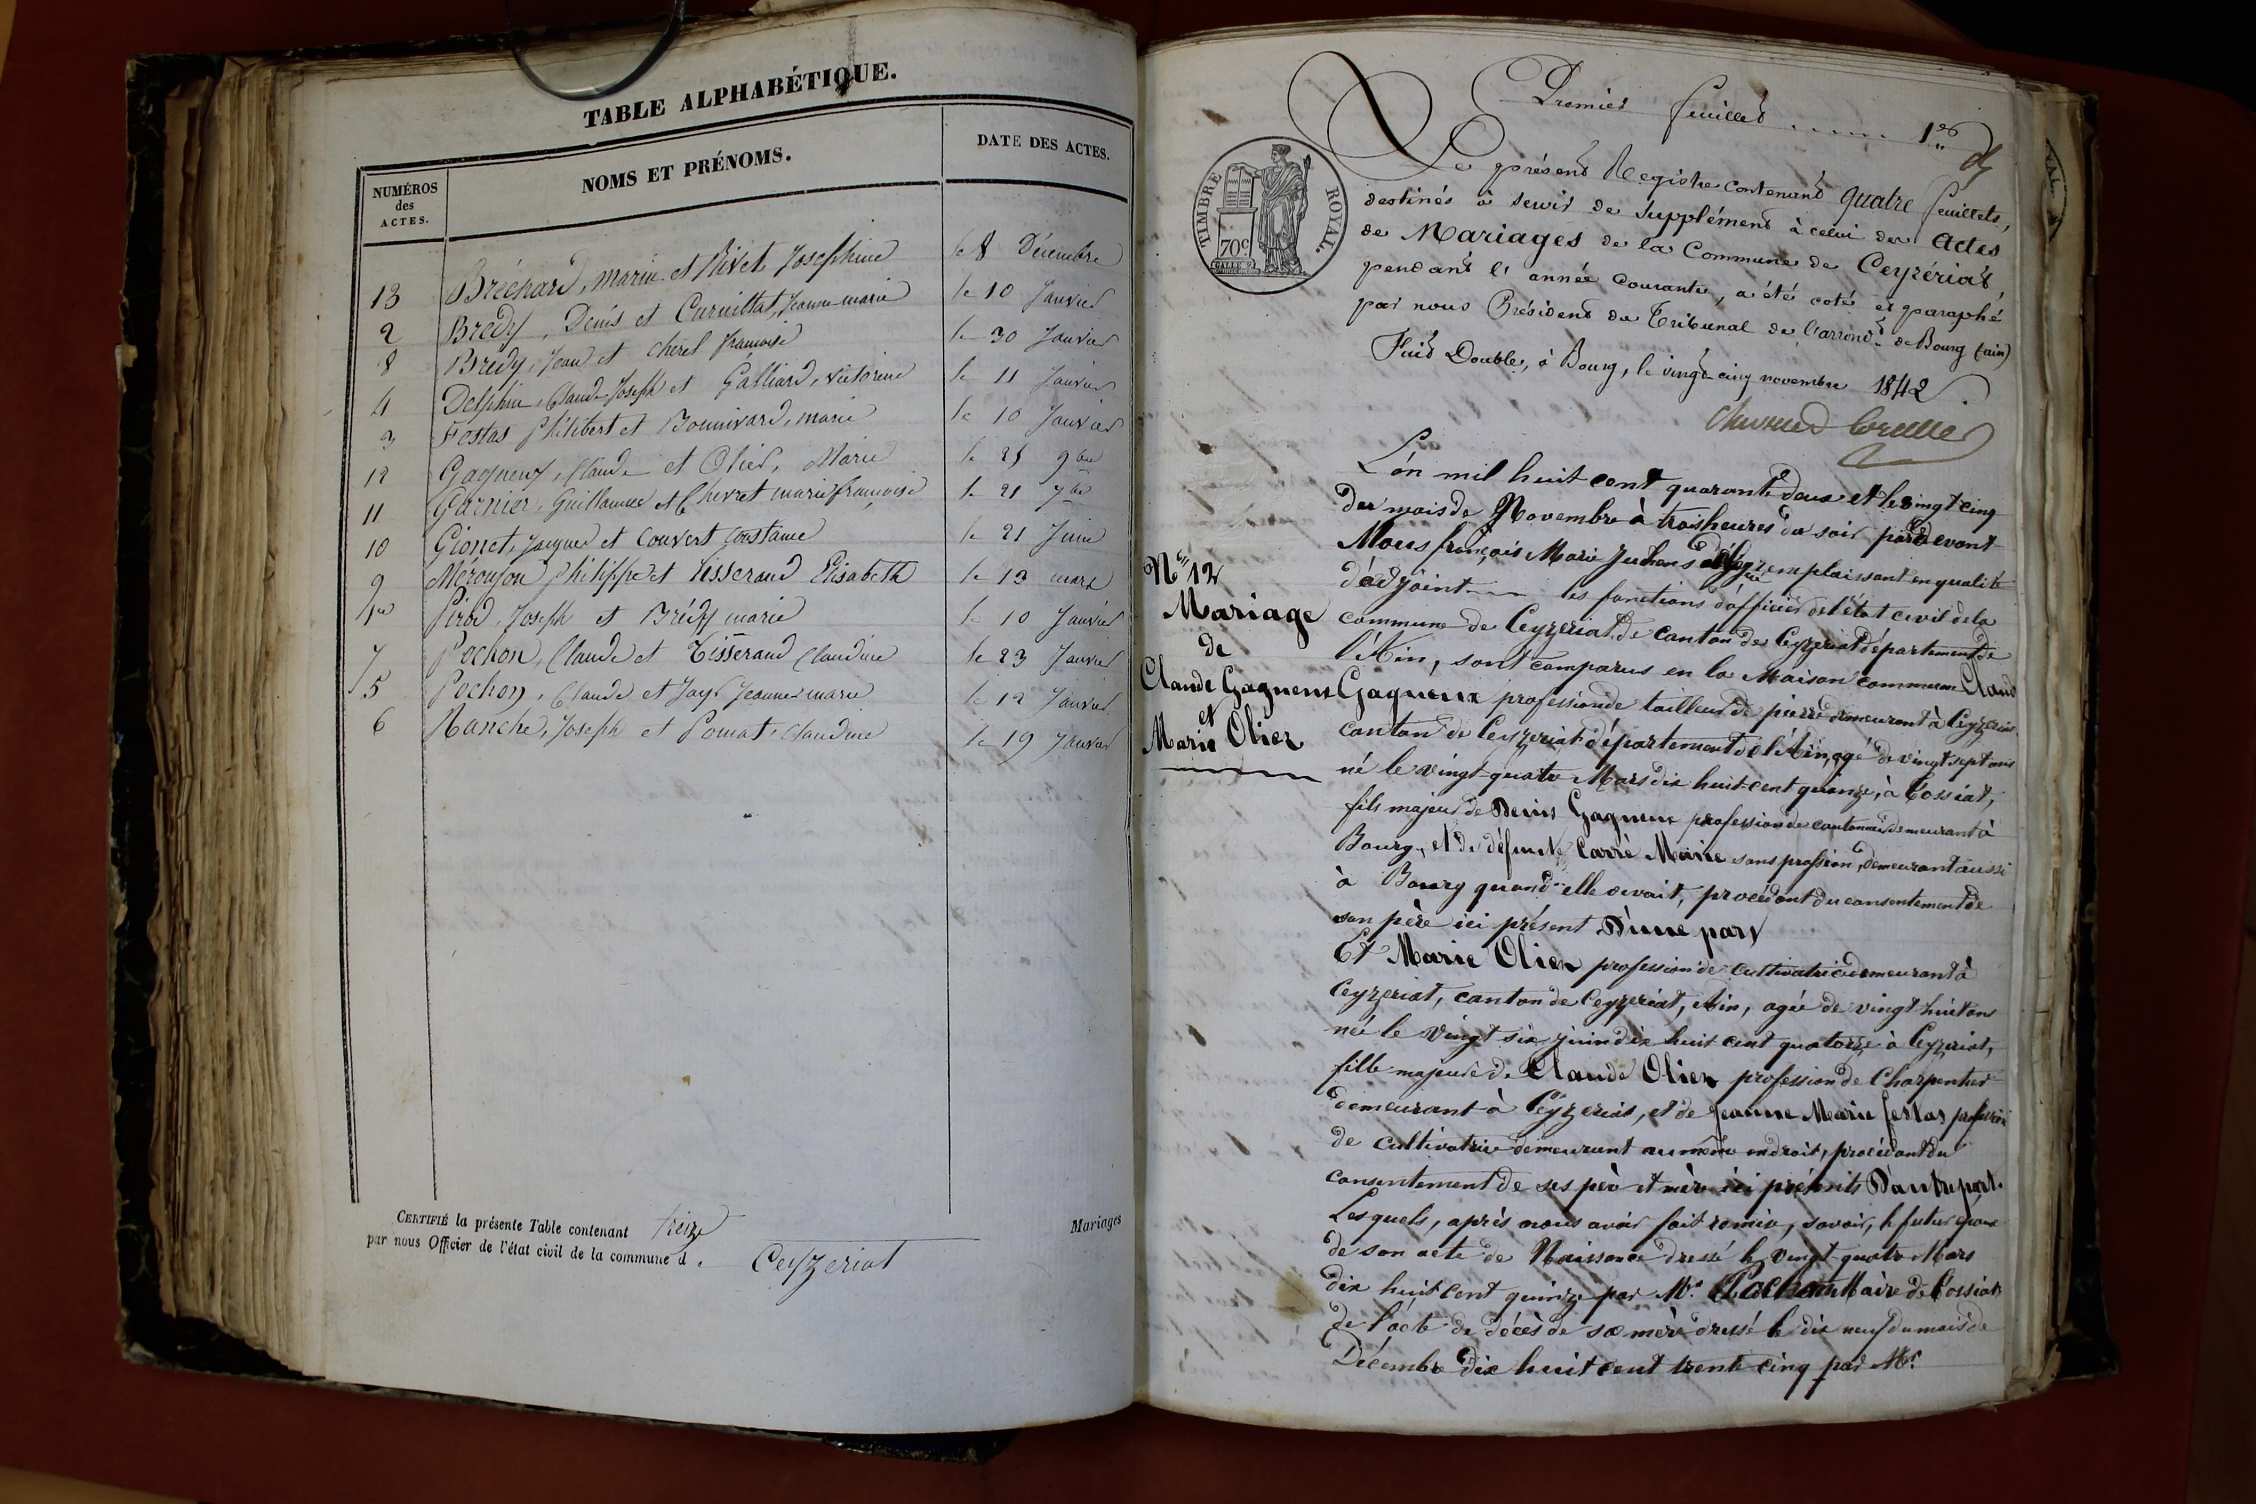 TABLE ALPHABÉTIQUE.
NUMÉROS des ACTES.
NOMS ET PRÉNOMS.
DATE DES ACTES.
13 Bréchard, marin et Rivet Josephine le 8 Décembre
2 Bredy, Denis et Curnillat, Jeanne-marie le 10 Janvier
8 Bredy, Jean et Cherel françoise le 30 Janvier
4 Delphin, Claude Joseph et Galliard, victorine le 11 Janvier
3 Festas philibert et Bonnivard, marie le 10 Janvier
12 Gagneux, Claude et Olier, Marie le 25 9bre
11 Garnier, Guillaume et Chevret marie françoise le 21 7bre
10 Gionet, Jacques et Couvert Constance le 21 Juin
9 Mérousou philippe et Tisserand Elisabeth le 13 mars
1er Pirod, Joseph et Brédy marie le 10 Janvier
7 Pochon, Claude et Tisserand Claudine le 23 Janvier
5 Pochon, Claude et Jay, Jeanne marie le 12 Janvier
6 Ranche, Joseph et Pomat, Claudine le 19 Janvier
CERTIFIÉ la présente Table contenant treize Mariages
par nous Officier de l'état civil de la commune d. Ceyzeriat
Premier feuillet ...... 1er
TIMBRE ROYAL.
70c
Le présent Registre contenant quatre feuillets,
destinés à servir de Supplément à celui des Actes
de Mariages de la Commune de Ceyzériat
pendant l'année courante, a été coté et paraphé
par nous Président du Tribunal de l'arrond.t de Bourg (ain)
Fait Double, à Bourg, le vingt cinq novembre 1842.
L'an mil huit cent quarante deux et le vingt cinq
du mois de Novembre à trois heures du soir par devant
Nous françois Marie remplaissant en qualité
d'adjoint les fonctions d'officier de l'état civil de la
commune de Ceyzeriat, de canton de Ceyzeriat département de
l'Ain, sont comparus en la Maison commune Claude
Gagneux profession de tailleur de pierre demeurant à Ceyzeriat
canton de Ceyzeriat département de l'Ain, agé de vingt sept ans
né le vingt quatre Mars dix huit cent quinze, à Tossiat,
fils majeur de Denis Gagneux profession de cantonnier demeurant à
Bourg, et de défunte Carré Marie sans profession, demeurant aussi
à Bourg quand elle vivait, procédant du consentement de
son père ici présent D'une part
Et Marie Olier profession de cultivatrice demeurant à
Ceyzeriat, canton de Ceyzeriat, Ain, agée de vingt huit ans
née le vingt six juin dix huit cent quatorze à Ceyzeriat,
fille majeure de Claude Olier profession de Charpentier
demeurant à Ceyzeriat, et de Jeanne Marie festas profession
de cultivatrice demeurant au même endroit, procédant du
consentement de ses père et mère ici présents D'autre part.
Lesquels, après nous avoir fait remis, savoir, le futur époux
de son acte de Naissance dressé le vingt quatre Mars
dix huit cent quinze par Mr. Maire de Tossiat
de l'acte de décès de sa mère dressé le dix neuf du mois de
Décembre dix huit cent trente cinq par Mr.
No 12
Mariage
de
Claude Gagneux
et
Marie Olier